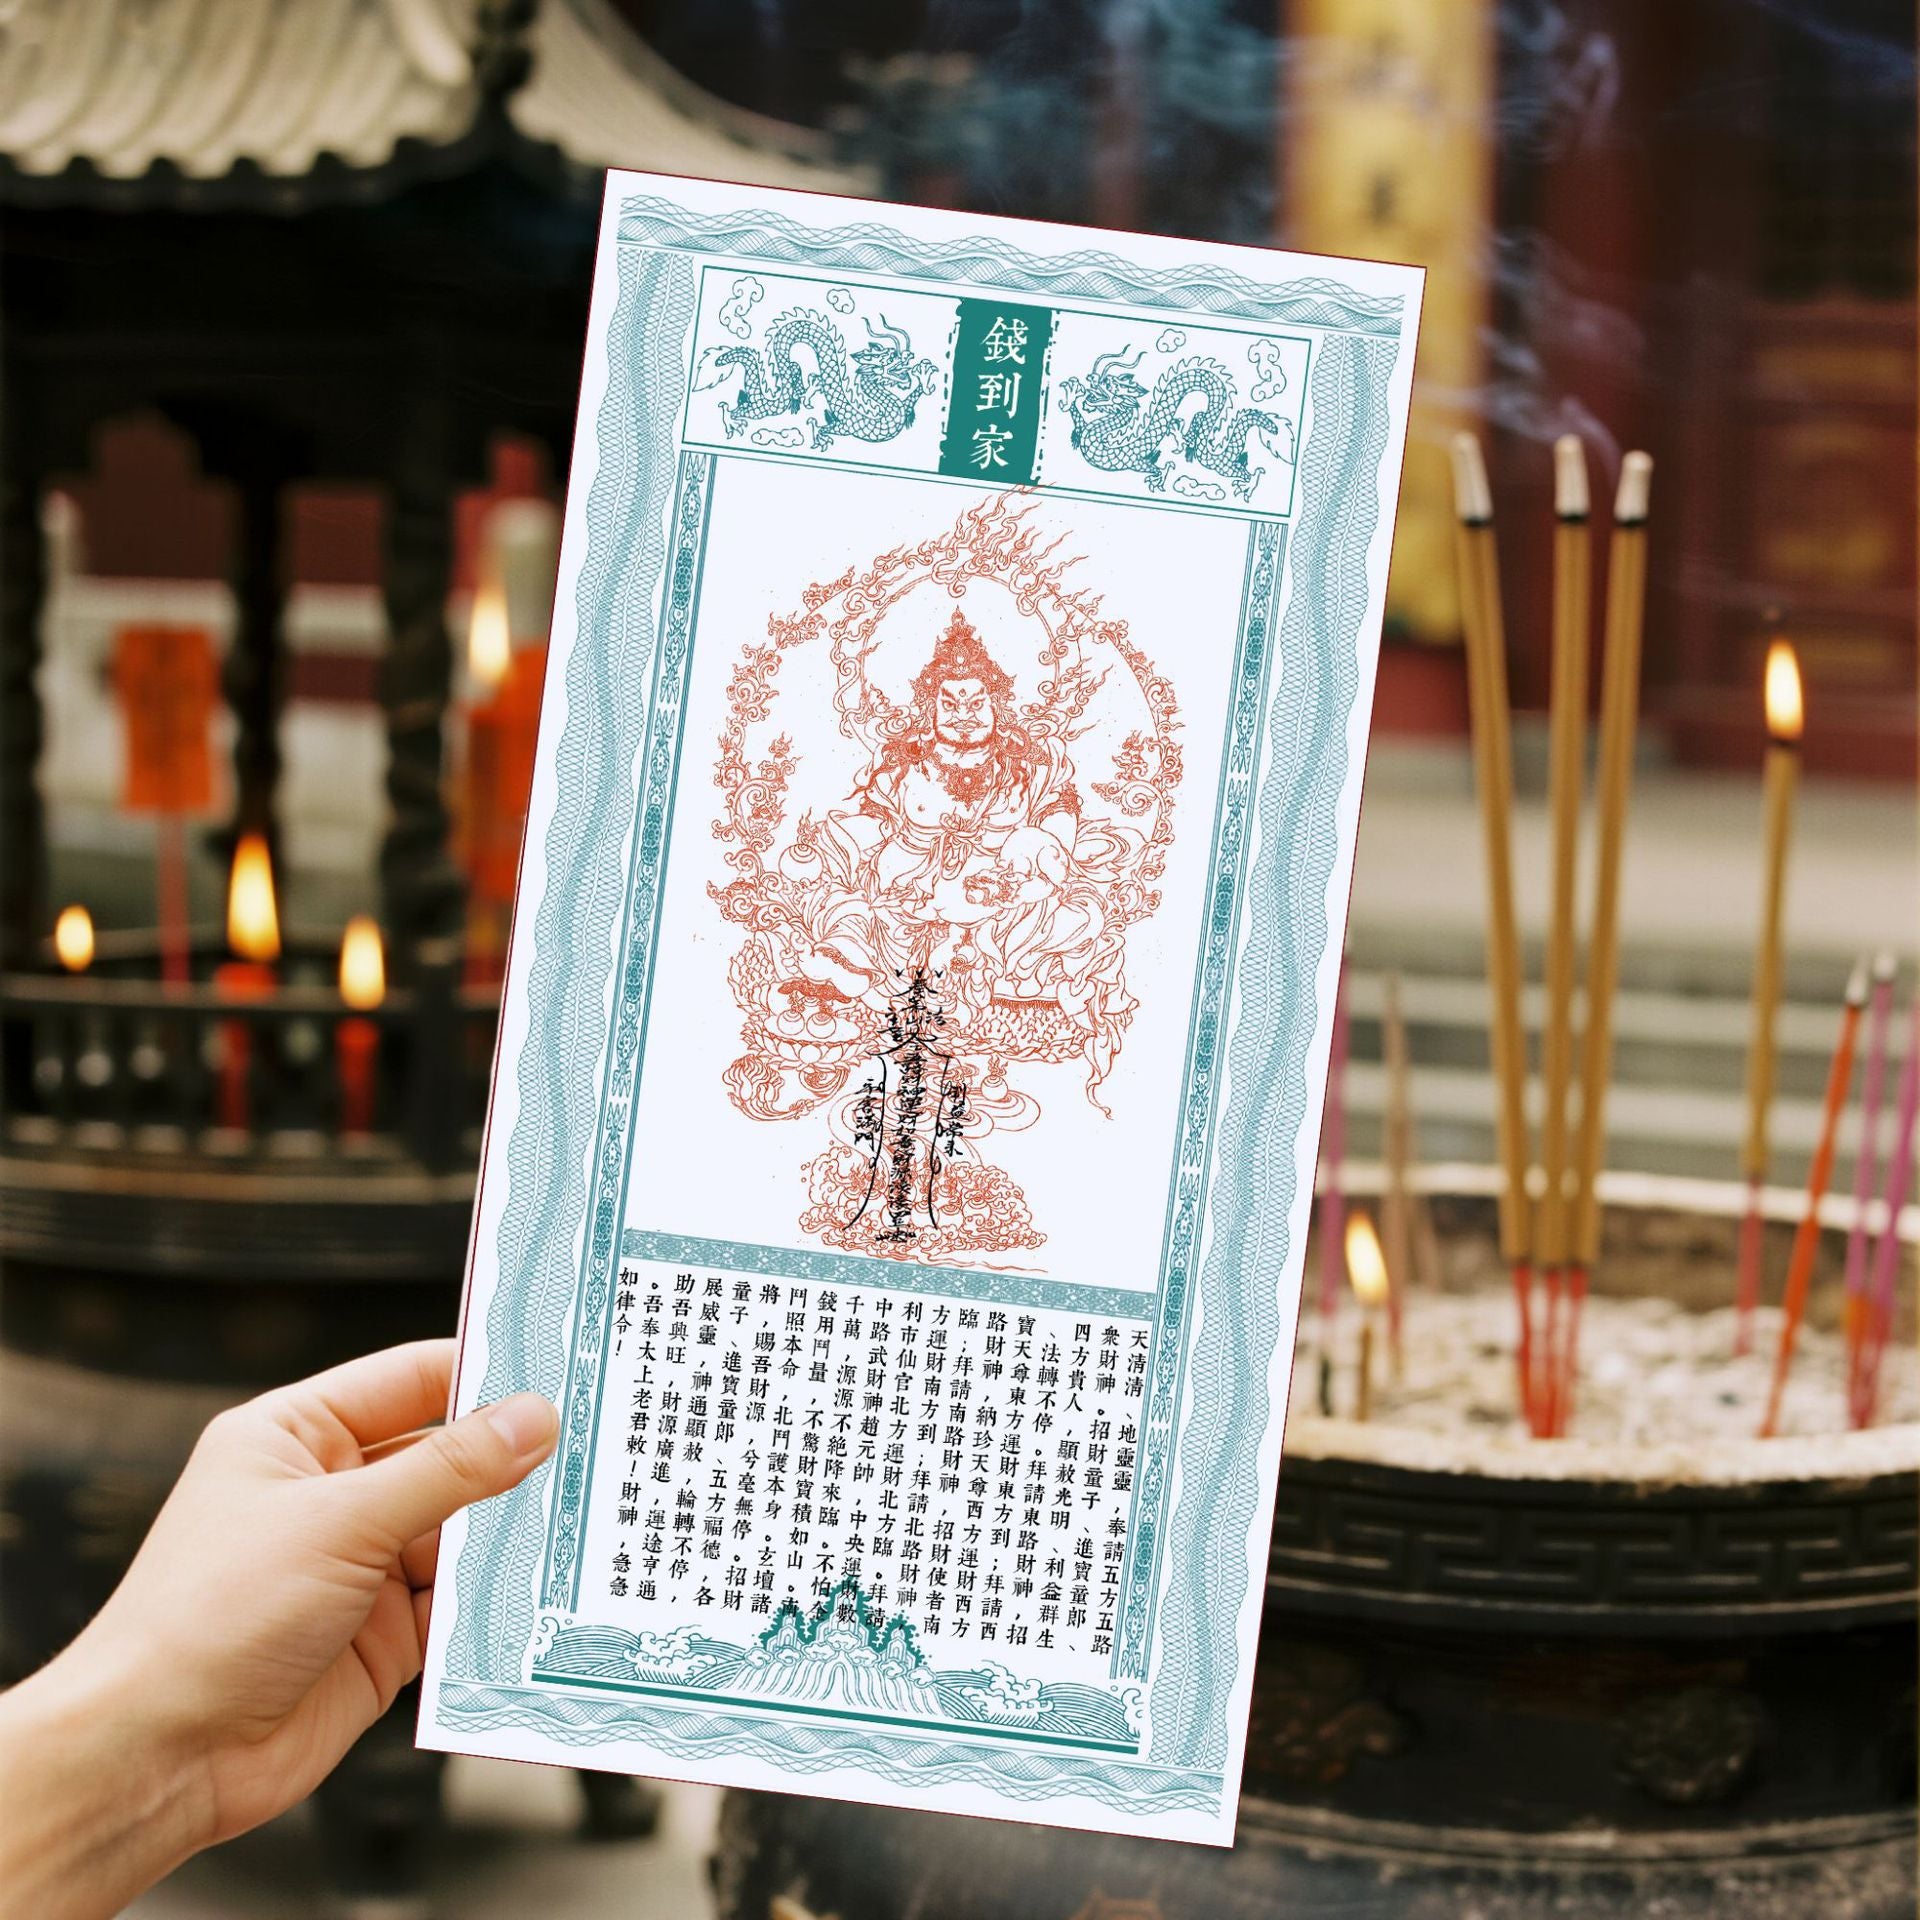 錢到家
利益常来
天清清、地靈靈，奉請五方五路
衆財神。招財童子、進寶童郎、
四方貴人，顯赦光明、利益群生
、法轉不停。拜請東路財神，招
寶天尊東方運財東方到；拜請西
路財神，納珍天尊西方運財西方
臨；拜請南路財神，招財使者南
方運財南方到；拜請北路財神，
利市仙官北方運財北方臨。拜請
中路武財神趙元帥，中央運財數
千萬，源源不絕降來臨。不怕金
錢用鬥量，不驚財寶積如山。南
鬥照本命，北鬥護本身。玄壇諸
將，賜吾財源，兮毫無停。招財
童子、進寶童郎、五方福德，各
展威靈，神通顯赦，輪轉不停，
助吾興旺，財源廣進，運途亨通
。吾奉太上老君敕！財神，急急
如律令！